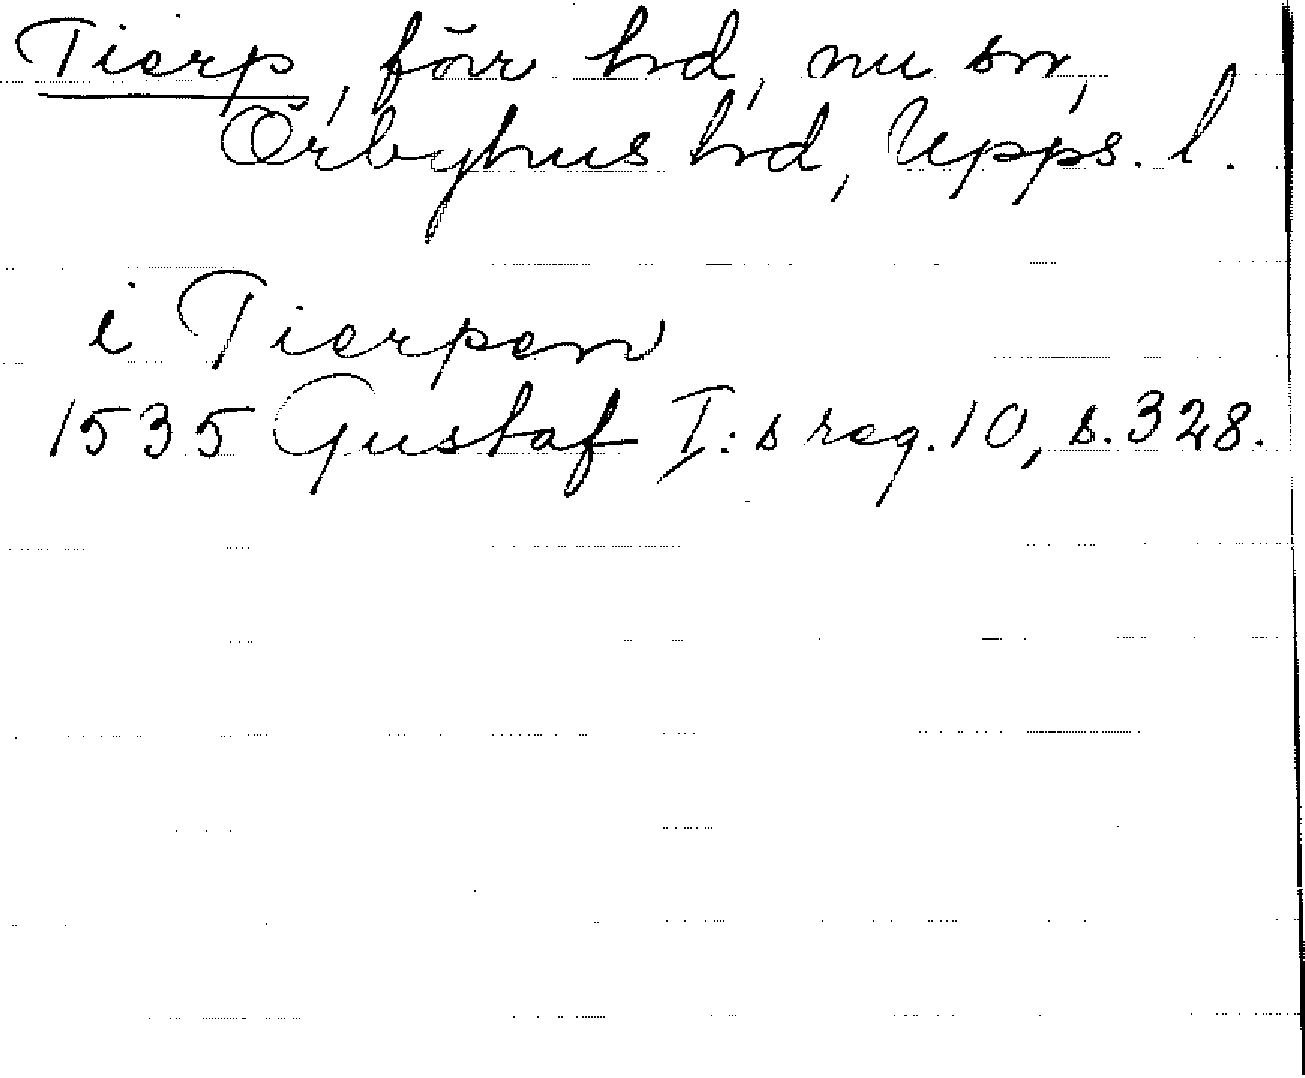 Tierp, förr hd, nu sn,
Örbyhus hd, Upps. l.
i Tierpen
1535 Gustaf I:s reg. 10, s. 328.